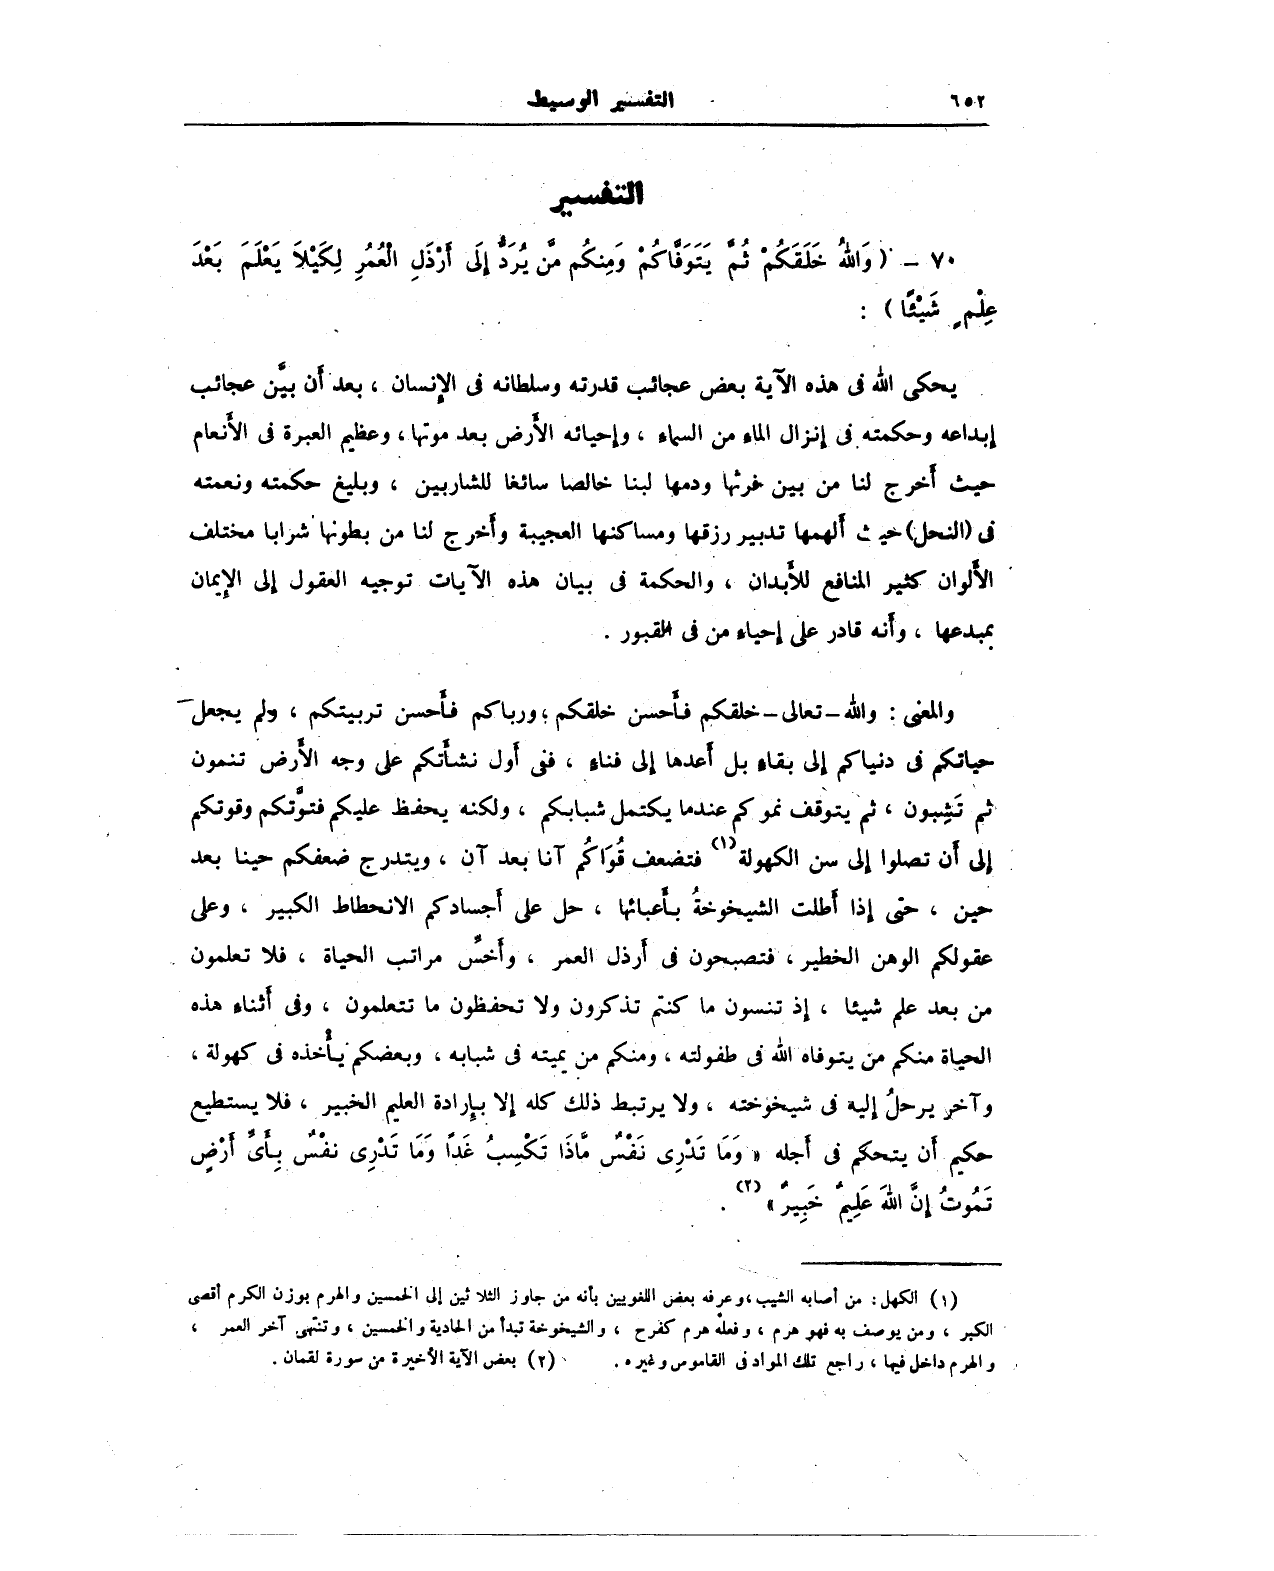 ٦٥٢
التفسير الوسيط
التفسير
٧٠ – ( وَاللهُ خَلَقَكُمْ ثُمَّ يَتَوَفَّاكُمْ وَمِنكُم مَّن يُرَدُّ إِلَى أَرْذَلِ الْعُمُرِ لِكَيْلَا يَعْلَمَ بَعْدَ
عِلْمٍ شَيْئًا ) :
يحكى الله فى هذه الآية بعض عجائب قدرته وسلطانه فى الإنسان ، بعد أن بيَّن عجائب
إبداعه وحكمته فى إنزال الماء من السماء ، وإحيائه الأرض بعد موتها ، وعظيم العبرة فى الأنعام
حيث أخرج لنا من بين فرثها ودمها لبنا خالصا سائغا للشاربين ، وبليغ حكمته ونعمته
فى (النحل) حيث ألهمها تدبير رزقها ومساكنها العجيبة وأخرج لنا من بطونها شرابا مختلف
الألوان كثير المنافع للأبدان ، والحكمة فى بيان هذه الآيات توجيه العقول إلى الإيمان
بمبدعها ، وأنه قادر على إحياء من فى القبور .
والمعنى : والله – تعالى – خلقكم فأحسن خلقكم ؛ ورباكم فأحسن تربيتكم ، ولم يجعل
حياتكم فى دنياكم إلى بقاء بل أعدها إلى فناء ، ففى أول نشأتكم على وجه الأرض تنمون
ثم تَشِبون ، ثم يتوقف نموكم عندما يكتمل شبابكم ، ولكنه يحفظ عليكم فتوَّتكم وقوتكم
إلى أن تصلوا إلى سن الكهولة (١) فتضعف قُوَاكُم آنا بعد آن ، ويتدرج ضعفكم حينا بعد
حين ، حتى إذا أطلت الشيخوخةُ بأعبائها ، حل على أجسادكم الانحطاط الكبير ، وعلى
عقولكم الوهن الخطير ، فتصبحون فى أرذل العمر ، وأخسِّ مراتب الحياة ، فلا تعلمون
من بعد علم شيئا ، إذ تنسون ما كنتم تذكرون ولا تحفظون ما تتعلمون ، وفى أثناء هذه
الحياة منكم من يتوفاه الله فى طفولته ، ومنكم من يميته فى شبابه ، وبعضكم يأخذه فى كهولة ،
وآخر يرحلُ إليه فى شيخوخته ، ولا يرتبط ذلك كله إلا بإرادة العليم الخبير ، فلا يستطيع
حكيم أن يتحكم فى أجله « وَمَا تَدْرِى نَفْسٌ مَّاذَا تَكْسِبُ غَدًا وَمَا تَدْرِى نَفْسٌ بِأَىِّ أَرْضٍ
تَمُوتُ إِنَّ اللهَ عَلِيمٌ خَبِيرٌ » (٢) .
(١) الكهل : من أصابه الشيب ، وعرفه بعض اللغويين بأنه من جاوز الثلاثين إلى الخمسين والهرم بوزن الكرم أقصى
الكبر ، ومن يوصف به فهو هرم ، وفعله هرم كفرح ، والشيخوخة تبدأ من الحادية والخمسين ، وتنتهى آخر العمر ،
والهرم داخل فيها ، راجع تلك المواد فى القاموس وغيره . (٢) بعض الآية الأخيرة من سورة لقمان .